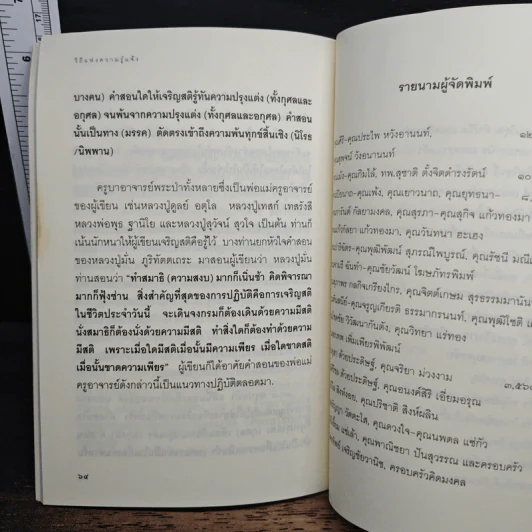 วิถีแห่งความรู้แจ้ง
บางคน) คำสอนใดให้เจริญสติรู้ทันความปรุงแต่ง (ทั้งกุศลและ
อกุศล) จนพ้นจากความปรุงแต่ง (ทั้งกุศลและอกุศล) คำสอน
นั้นเป็นทาง (มรรค) ตัดตรงเข้าถึงความพ้นทุกข์สิ้นเชิง (นิโรธ
/นิพพาน)
ครูบาอาจารย์พระป่าทั้งหลายซึ่งเป็นพ่อแม่ครูอาจารย์
ของผู้เขียน เช่นหลวงปู่ดูลย์ อตุโล หลวงปู่เทสก์ เทสรังสี
หลวงพ่อพุธ ฐานิโย และหลวงปู่สุวัจน์ สุวโจ เป็นต้น ท่านก็
เน้นนักหนาให้ผู้เขียนเจริญสติคือรู้ไว้ บางท่านยกหัวใจคำสอน
ของหลวงปู่มั่น ภูริทัตตเถระ มาสอนผู้เขียนว่า หลวงปู่มั่น
ท่านสอนว่า "ทำสมาธิ (ความสงบ) มากก็เนิ่นช้า คิดพิจารณา
มากก็ฟุ้งซ่าน สิ่งสำคัญที่สุดของการปฏิบัติคือการเจริญสติ
ในชีวิตประจำวันนี้ จะเดินจงกรมก็ต้องเดินด้วยความมีสติ
นั่งสมาธิก็ต้องนั่งด้วยความมีสติ ทำสิ่งใดก็ต้องทำด้วยความ
มีสติ เพราะเมื่อใดมีสติเมื่อนั้นมีความเพียร เมื่อใดขาดสติ
เมื่อนั้นขาดความเพียร" ผู้เขียนก็ได้อาศัยคำสอนของพ่อแม่
ครูอาจารย์ดังกล่าวนี้เป็นแนวทางปฏิบัติตลอดมา.
๖๔
รายนามผู้จัดพิมพ์
คุณประไพ หวังอานนท์,
วังอนานนท์
คุณกิมไล้, ทพ.สุชาติ ตั้งจิตดำรงรัตน์
คุณเพ้ง, คุณเยาวนาถ, คุณยุทธนา-
กัลยามงคล, คุณสุรภา-คุณสุกิจ แก้วทองมา
แก้วทองมา, คุณวันทนา ฮะเฮง
คุณพุฒิพัฒน์ สุภรณ์ไพบูรณ์, คุณรัชนี
คุณชัยวัฒน์ โฆษภัทรพิมพ์
กลกิจเกรียงไกร, คุณจิตต์เกษม
คุณจรูญเกียรติ ธรรมากรนนท์,
วิวัฒนากันตัง, คุณวิทยา แร่ทอง
เพิ่มเพียรพิพัฒน์
ด้วยประดิษฐ์, คุณจริยา ม่วงงาม
ด้วยประดิษฐ์, คุณอนงค์สิริ เอี่ยมอรุณ
๓,๕๖๐
คุณปริชาติ สิงห์ผลิน
วัดตะโส, คุณดวงใจ-คุณนพดล แซ่กัว
แซ่เล้า, คุณพาณิชยา ปันสุวรรณ และครอบครัว
เจริญชัยวานิช, ครอบครัวคิดมงคล